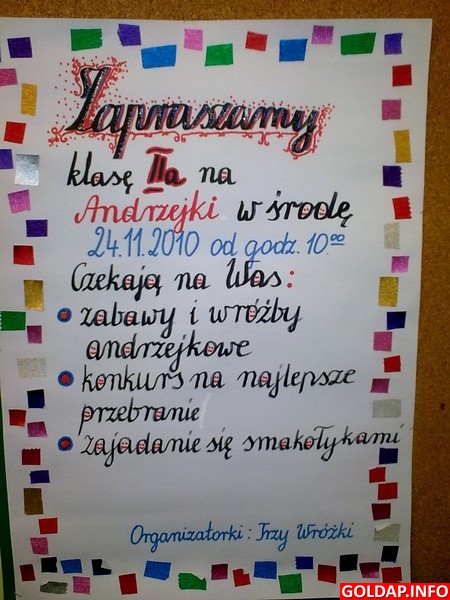 Zapraszamy
klasę IIa na
Andrzejki w środę
24.11.2010 od godz. 10⁰⁰
Czekają na Was:
zabawy i wróżby
andrzejkowe
konkurs na najlepsze
przebranie
zajadanie się smakołykami
Organizatorki: Trzy Wróżki
GOLDAP.INFO